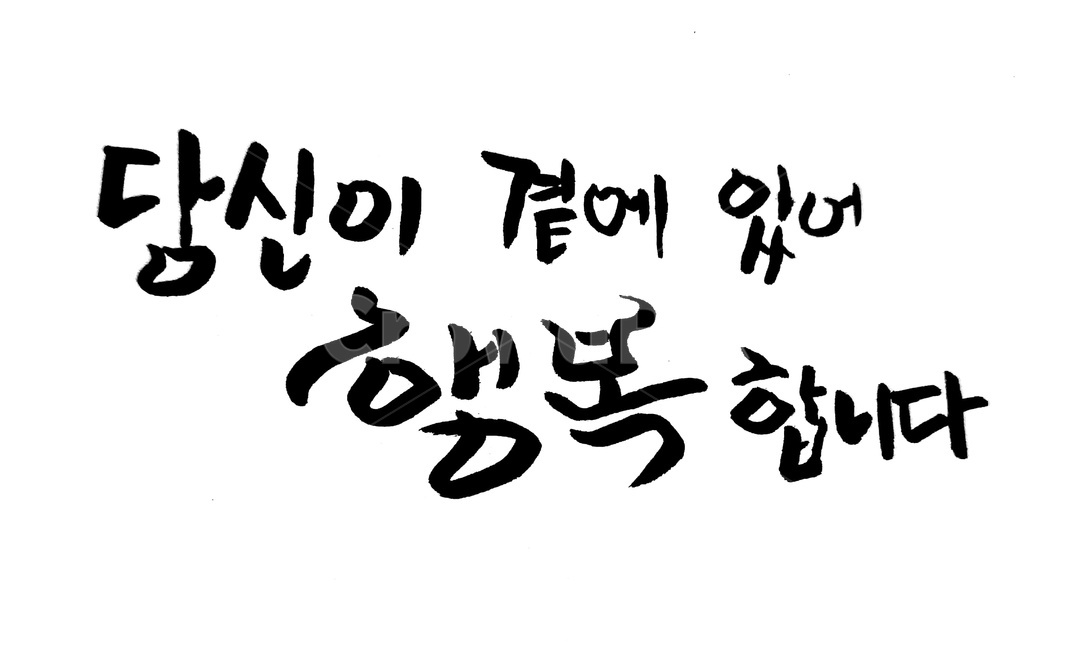 당신이 곁에 있어
행복 합니다